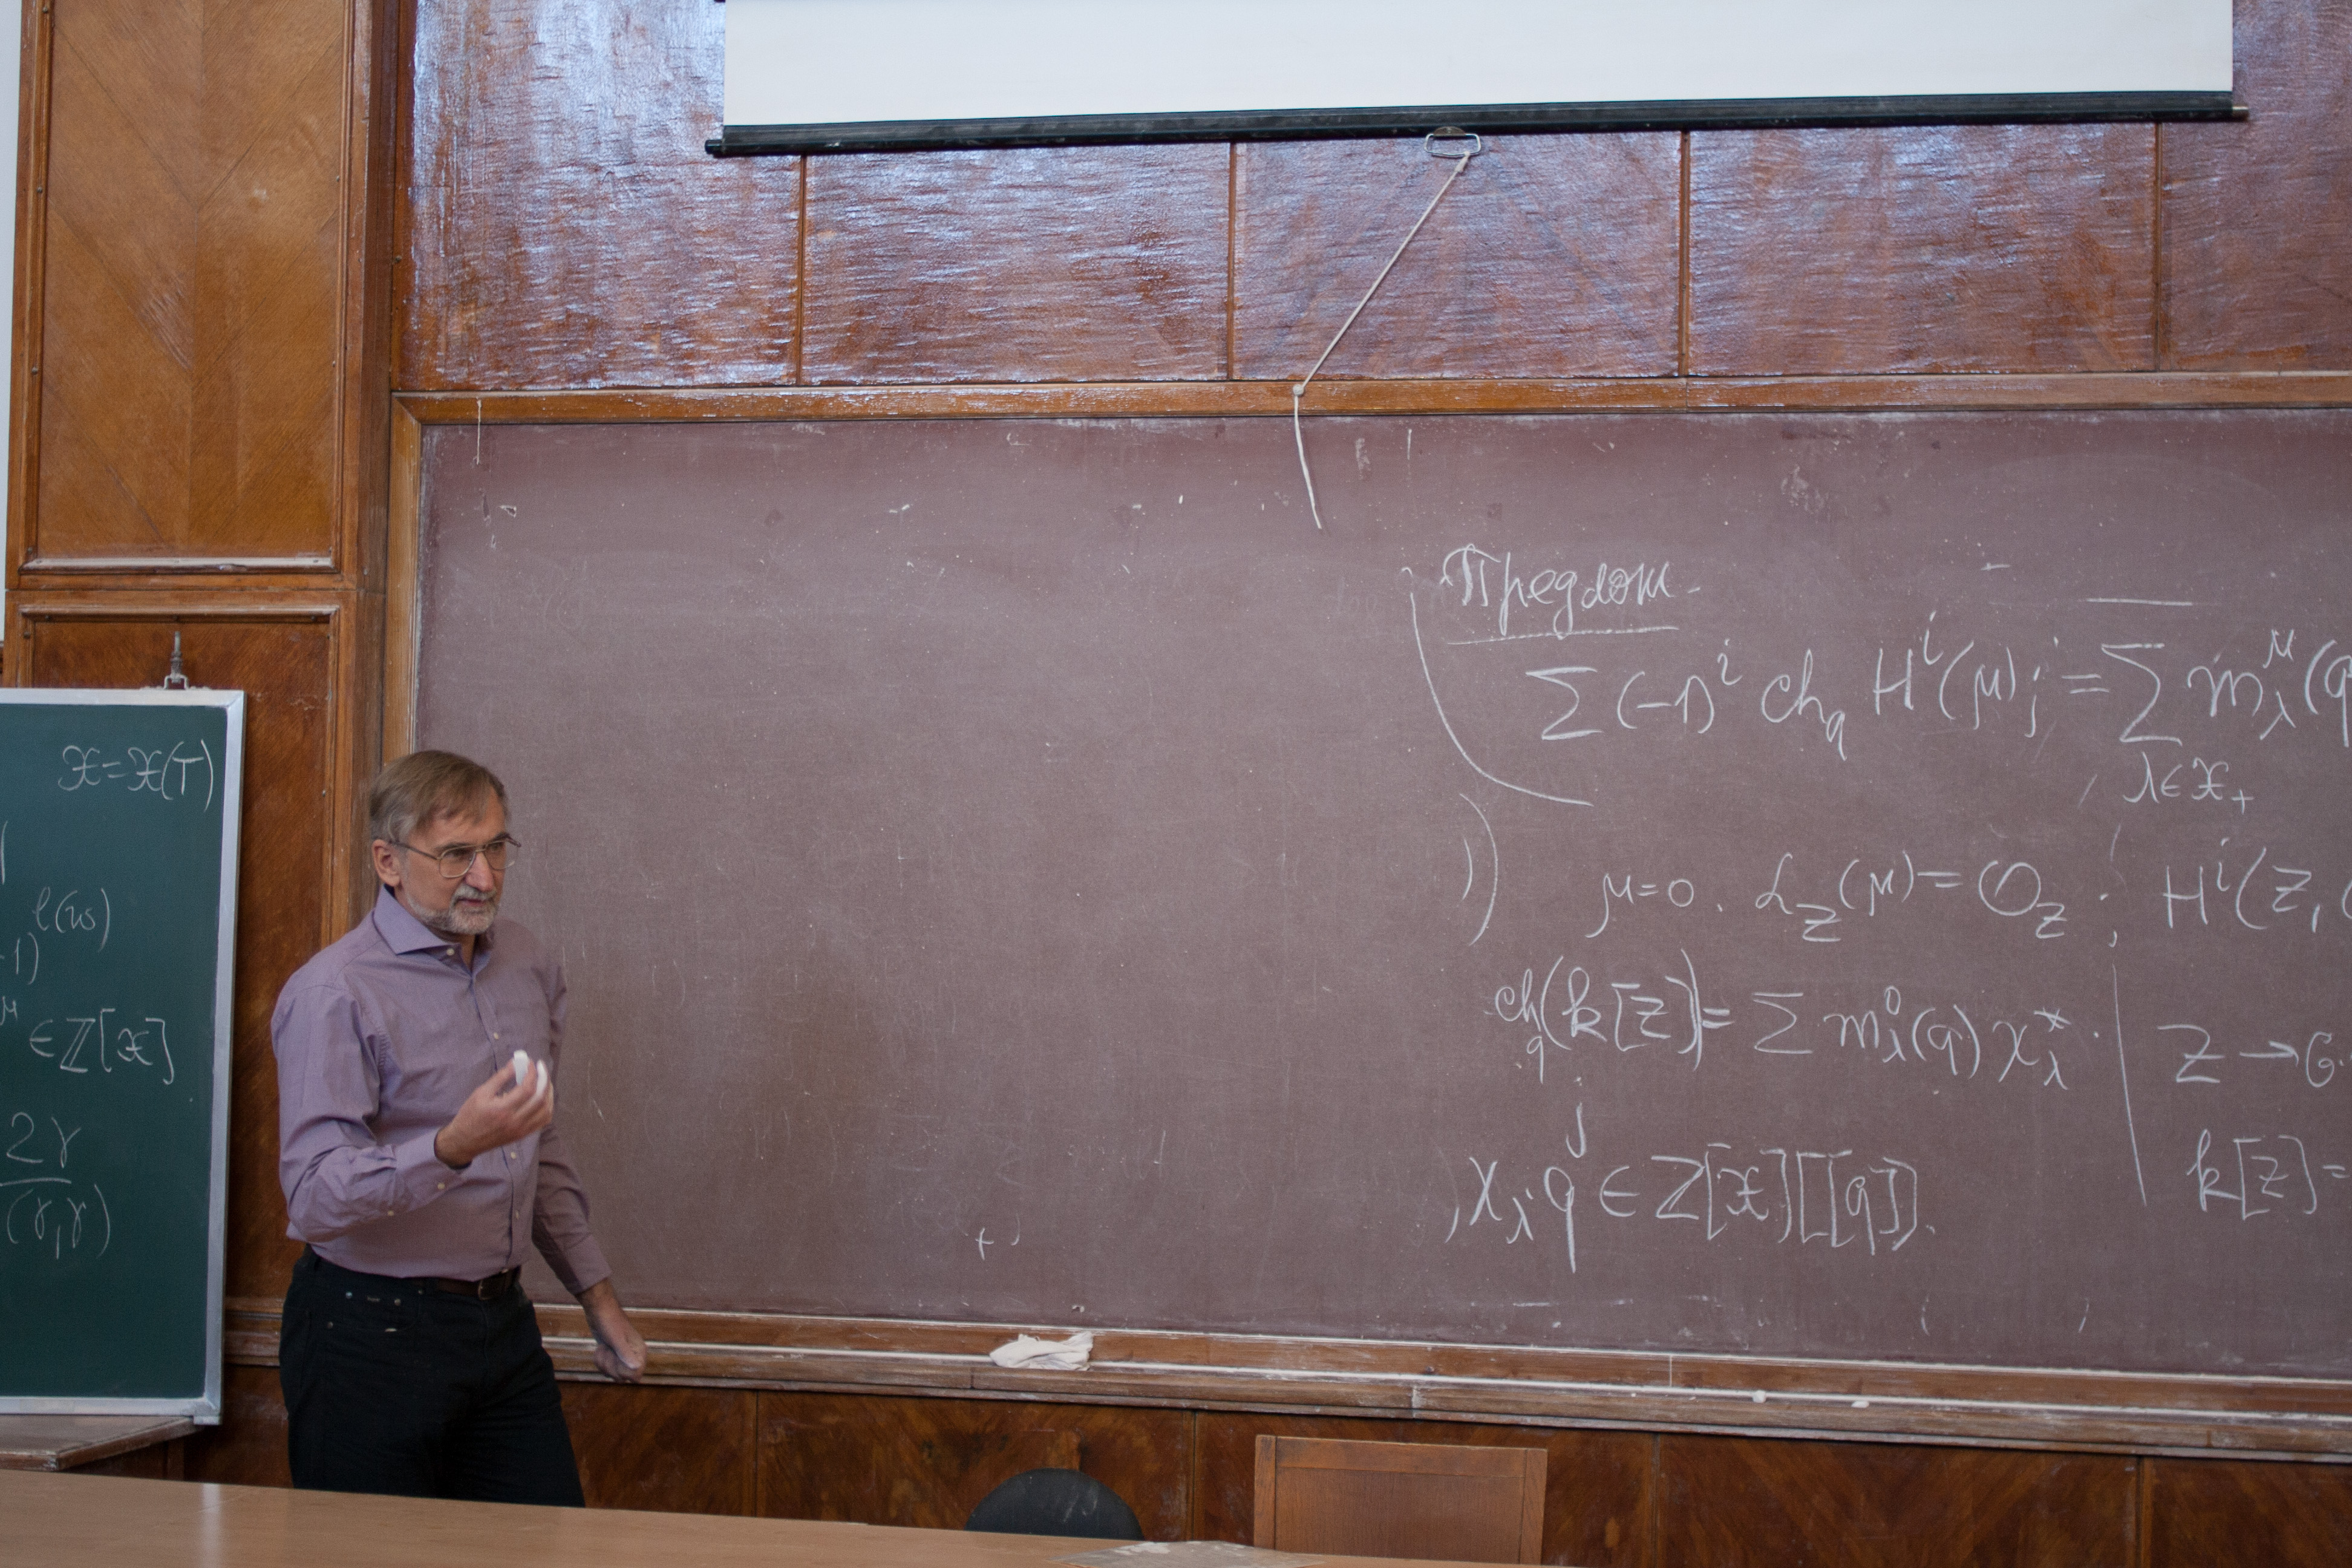 𝔛=𝔛(T)
ℓ(w)
-1)
μ ∈ℤ[𝔛]
2γ
(γ,γ)
Предлож.
∑(-1)ⁱ ch_q Hⁱ(μ); = ∑ m_λ^μ(q
λ∈𝔛₊
μ=0. ℒ_Z(μ)=𝒪_Z; Hⁱ(Z,
ch_q(k[Z])=∑ m_λ^0(q) χ_λ^*.
Z→G.
χ_λ q^j ∈ ℤ[𝔛][[q]].
k[Z]=